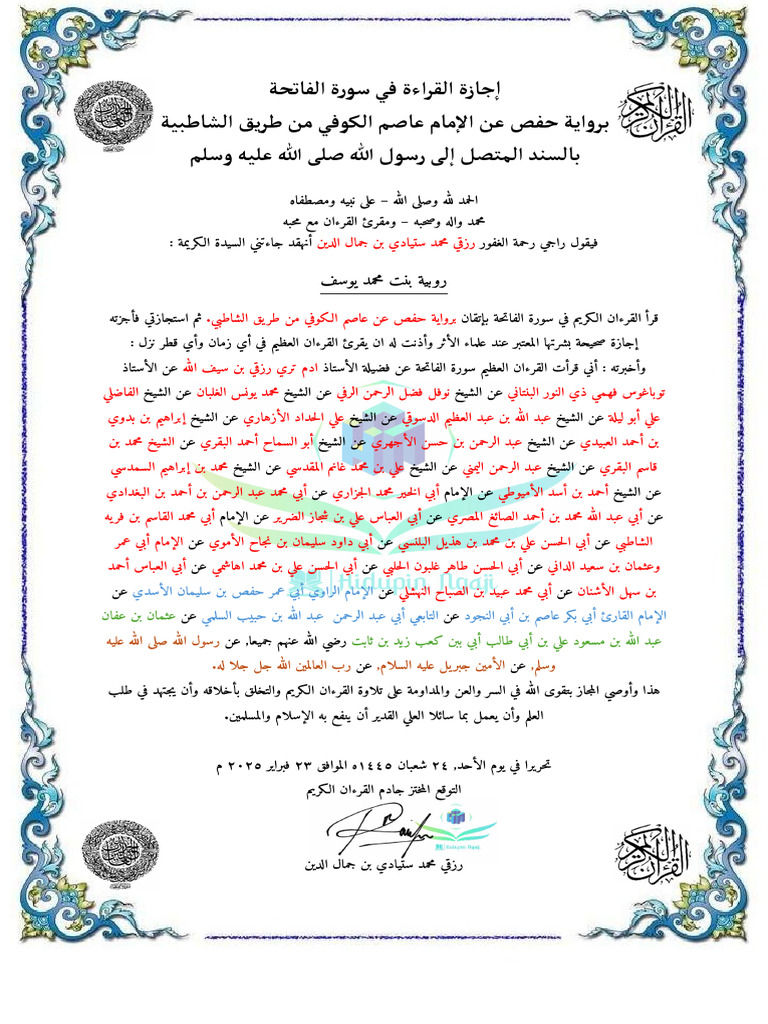 إجازة القراءة في سورة الفاتحة
برواية حفص عن الإمام عاصم الكوفي من طريق الشاطبية
بالسند المتصل إلى رسول الله صلى الله عليه وسلم
الحمد لله وصلى الله – على نبيه ومصطفاه
محمد واله وصحبه – ومقرئ القرءان مع محبه
فيقول راجي رحمة الغفور رزقي محمد ستيادي بن جمال الدين أنهقد جاءتني السيدة الكريمة :
روبية بنت محمد يوسف
قرأ القرءان الكريم في سورة الفاتحة بإتقان برواية حفص عن عاصم الكوفي من طريق الشاطبي. ثم استجازتي فأجزته
إجازة صحيحة بشرتها المعتبر عند علماء الأثر وأذنت له ان يقرئ القرءان العظيم في أي زمان وأي قطر نزل :
وأخبرته : أني قرأت القرءان العظيم سورة الفاتحة عن فضيلة الأستاذ ادم تري رزقي بن سيف الله عن الأستاذ
توباغوس فهمي ذي النور البنتاني عن الشيخ نوفل فضل الرحمن الرفي عن الشيخ محمد يونس الغلبان عن الشيخ الفاضلي
علي أبو ليلة عن الشيخ عبد الله بن عبد العظيم الدسوقي عن الشيخ علي الحداد الأزهاري عن الشيخ إبراهيم بن بدوي
بن أحمد العبيدي عن الشيخ عبد الرحمن بن حسن الأجهري عن الشيخ أبو السماح أحمد البقري عن الشيخ محمد بن
قاسم البقري عن الشيخ عبد الرحمن اليمني عن الشيخ علي بن محمد غانم المقدسي عن الشيخ محمد بن إبراهيم السمدسي
عن الشيخ أحمد بن أسد الأميوطي عن الإمام أبي الخير محمد الجزاري عن أبي محمد عبد الرحمن بن أحمد بن البغدادي
عن أبي عبد الله محمد بن أحمد الصائغ المصري عن أبي العباس علي بن شجاز الضرير عن الإمام أبي محمد القاسم بن فريه
الشاطبي عن أبي الحسن علي بن محمد بن هذيل البلنسي عن أبي داود سليمان بن نجاح الأموي عن الإمام أبي عمر
وعثمان بن سعيد الداني عن أبي الحسن طاهر غلبون الحلبي عن أبي الحسن علي بن محمد اهاشمي عن أبي العباس أحمد
بن سهل الأشنان عن أبي محمد عبيد بن الصباح النهشلي عن الإمام الراوي أبي عمر حفص بن سليمان الأسدي عن
الإمام القارئ أبي بكر عاصم بن أبي النجود عن التابعي أبي عبد الرحمن عبد الله بن حبيب السلمي عن عثمان بن عفان
عبد الله بن مسعود علي بن أبي طالب أبي بين كعب زيد بن ثابت رضي الله عنهم جميعا, عن رسول الله صلى الله عليه
وسلم, عن الأمين جبريل عليه السلام, عن رب العالمين الله جل جلا له.
Hidupin Ngaji
هذا وأوصي المجاز بتقوى الله في السر والعن والمداومة على تلاوة القرءان الكريم والتخلق بأخلاقه وأن يجتهد في طلب
العلم وأن يعمل بما سائلا العلي القدير أن ينفع به الإسلام والمسلمين.
تحريرا في يوم الأحد, ٢٤ شعبان ١٤٤٥ه الموافق ٢٣ فبراير ٢٠٢٥ م
التوقع المختز جادم القرءان الكريم
Hidupin Ngaji
رزقي محمد ستيادي بن جمال الدين